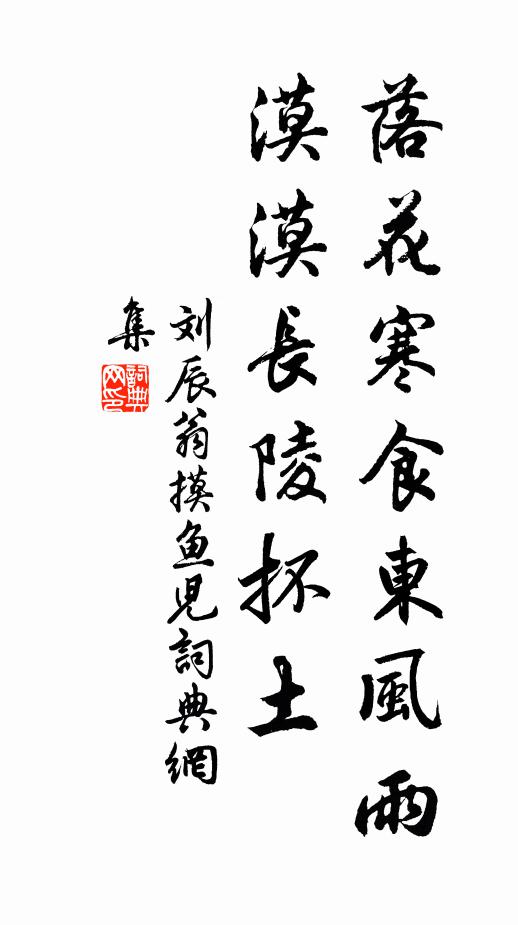 落花寒食東風雨
漠漠長陵抔土
刘辰翁摸鱼児詞典網
集
詞典
网印